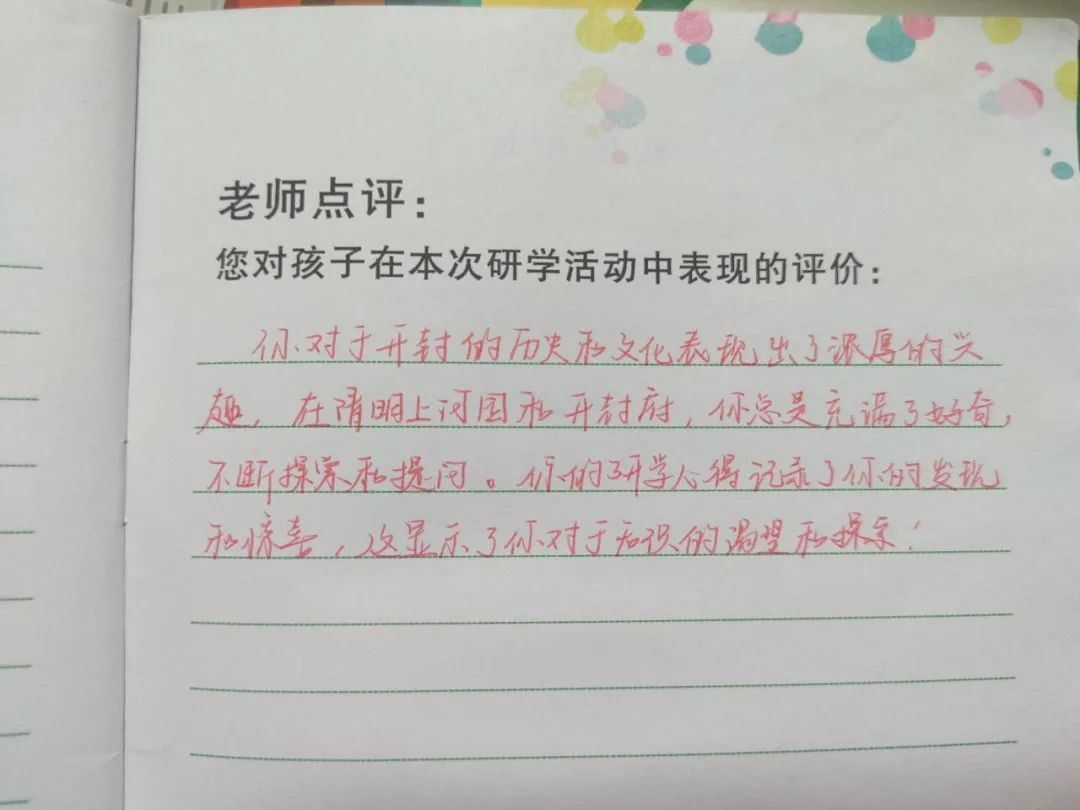 老师点评：
您对孩子在本次研学活动中表现的评价：
你对于开封的历史和文化表现出了浓厚的兴
趣，在清明上河园和开封府，你总是充满了好奇，
不断探索和提问。你的研学心得记录了你的发现
和惊喜，这显示了你对于知识的渴望和探索！